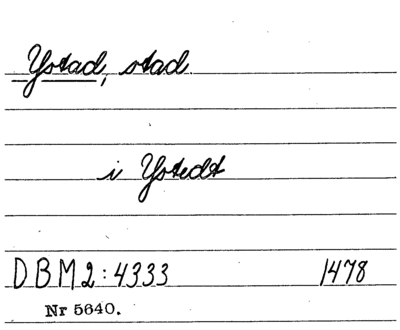 Ystad, stad.
i Ystedt
DBM2:4333 1478
Nr 5640.